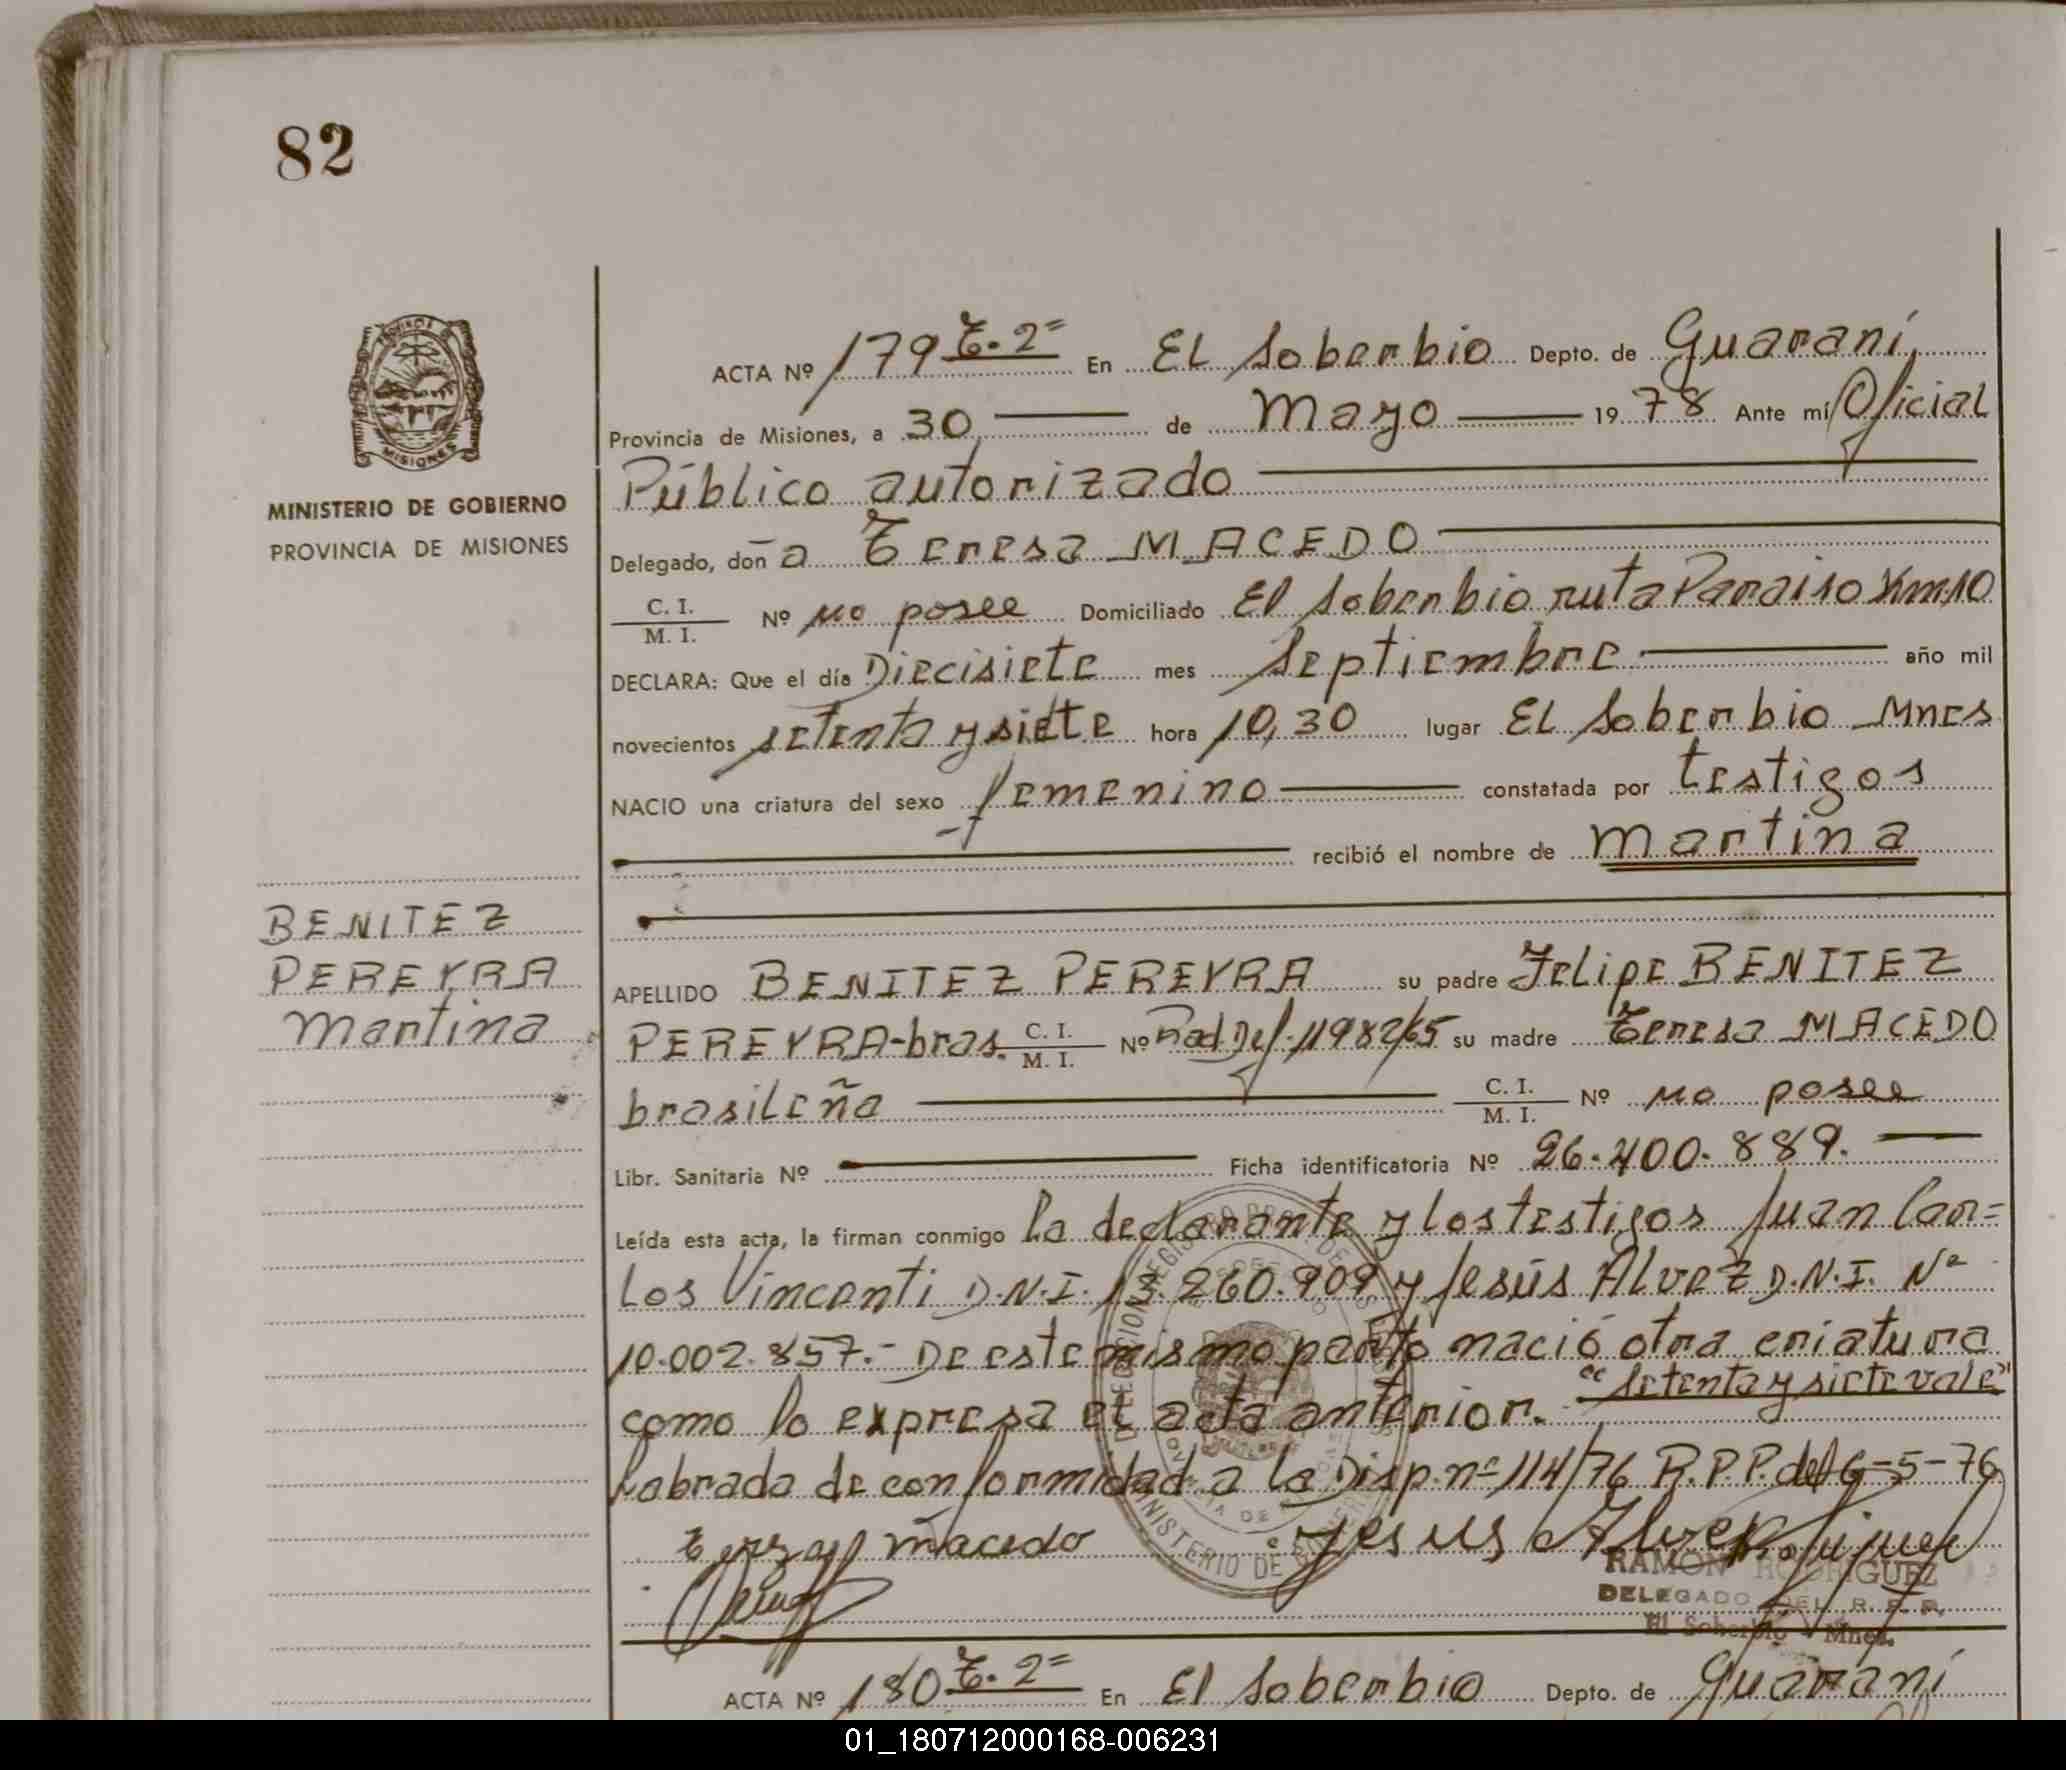 82
MINISTERIO DE GOBIERNO
PROVINCIA DE MISIONES
MISIONES
ACTA Nº 179 T. 2º En El Soberbio Depto. de Guaraní,
Provincia de Misiones, a 30 de Mayo 1978 Ante mí Oficial
Público autorizado
Delegado, doña Teresa MACEDO
C. I.
M. I. Nº no posee Domiciliado El Soberbio ruta Paraiso Km 10
DECLARA: Que el día Diecisiete mes Septiembre año mil
novecientos setenta y siete hora 10,30 lugar El Soberbio Mnes
NACIO una criatura del sexo femenino constatada por testigos
recibió el nombre de Martina
BENITEZ
PEREYRA
Martina
APELLIDO BENITEZ PEREYRA su padre Felipe BENITEZ
PEREYRA-bras. C. I. M. I. Nº Rad Def. 11982/65 su madre Teresa MACEDO
brasileña C. I. M. I. Nº no posee
Libr. Sanitaria Nº Ficha identificatoria Nº 26.400.889.
Leída esta acta, la firman conmigo la declarante y los testigos Juan Car=
los Vincenti D.N.I. 13.260.909 y Jesús Alvez D.N.I. Nº
10.002.857.- De este mismo parto nació otra criatura
como lo expresa el acta anterior. "Setenta y siete vale"
Labrada de conformidad a la Disp. nº 114/76 R.P.P. del 6-5-76
macedo Jesus Alvez
RAMON RODRIGUEZ
DELEGADO DEL R. P. P.
El Soberbio - Mnes.
ACTA Nº 180 T. 2º En El Soberbio Depto. de Guaraní
01_180712000168-006231